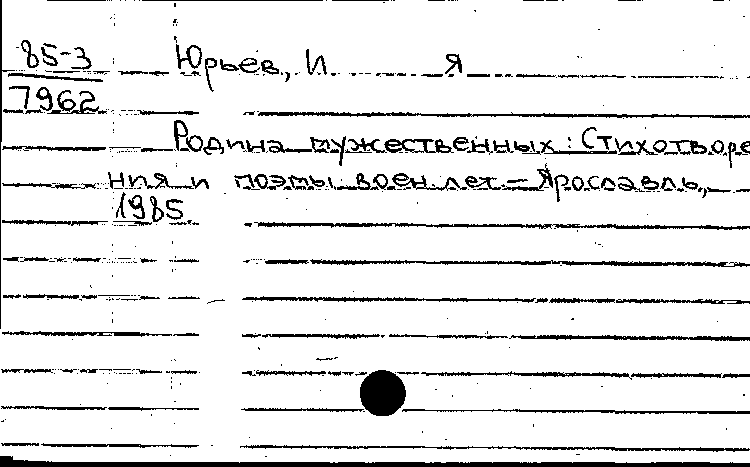 85-3 Юрьев, И. Я
7962
Родина мужественных: Стихотворе
ния и поэмы воен. лет – Ярославль,
1985.